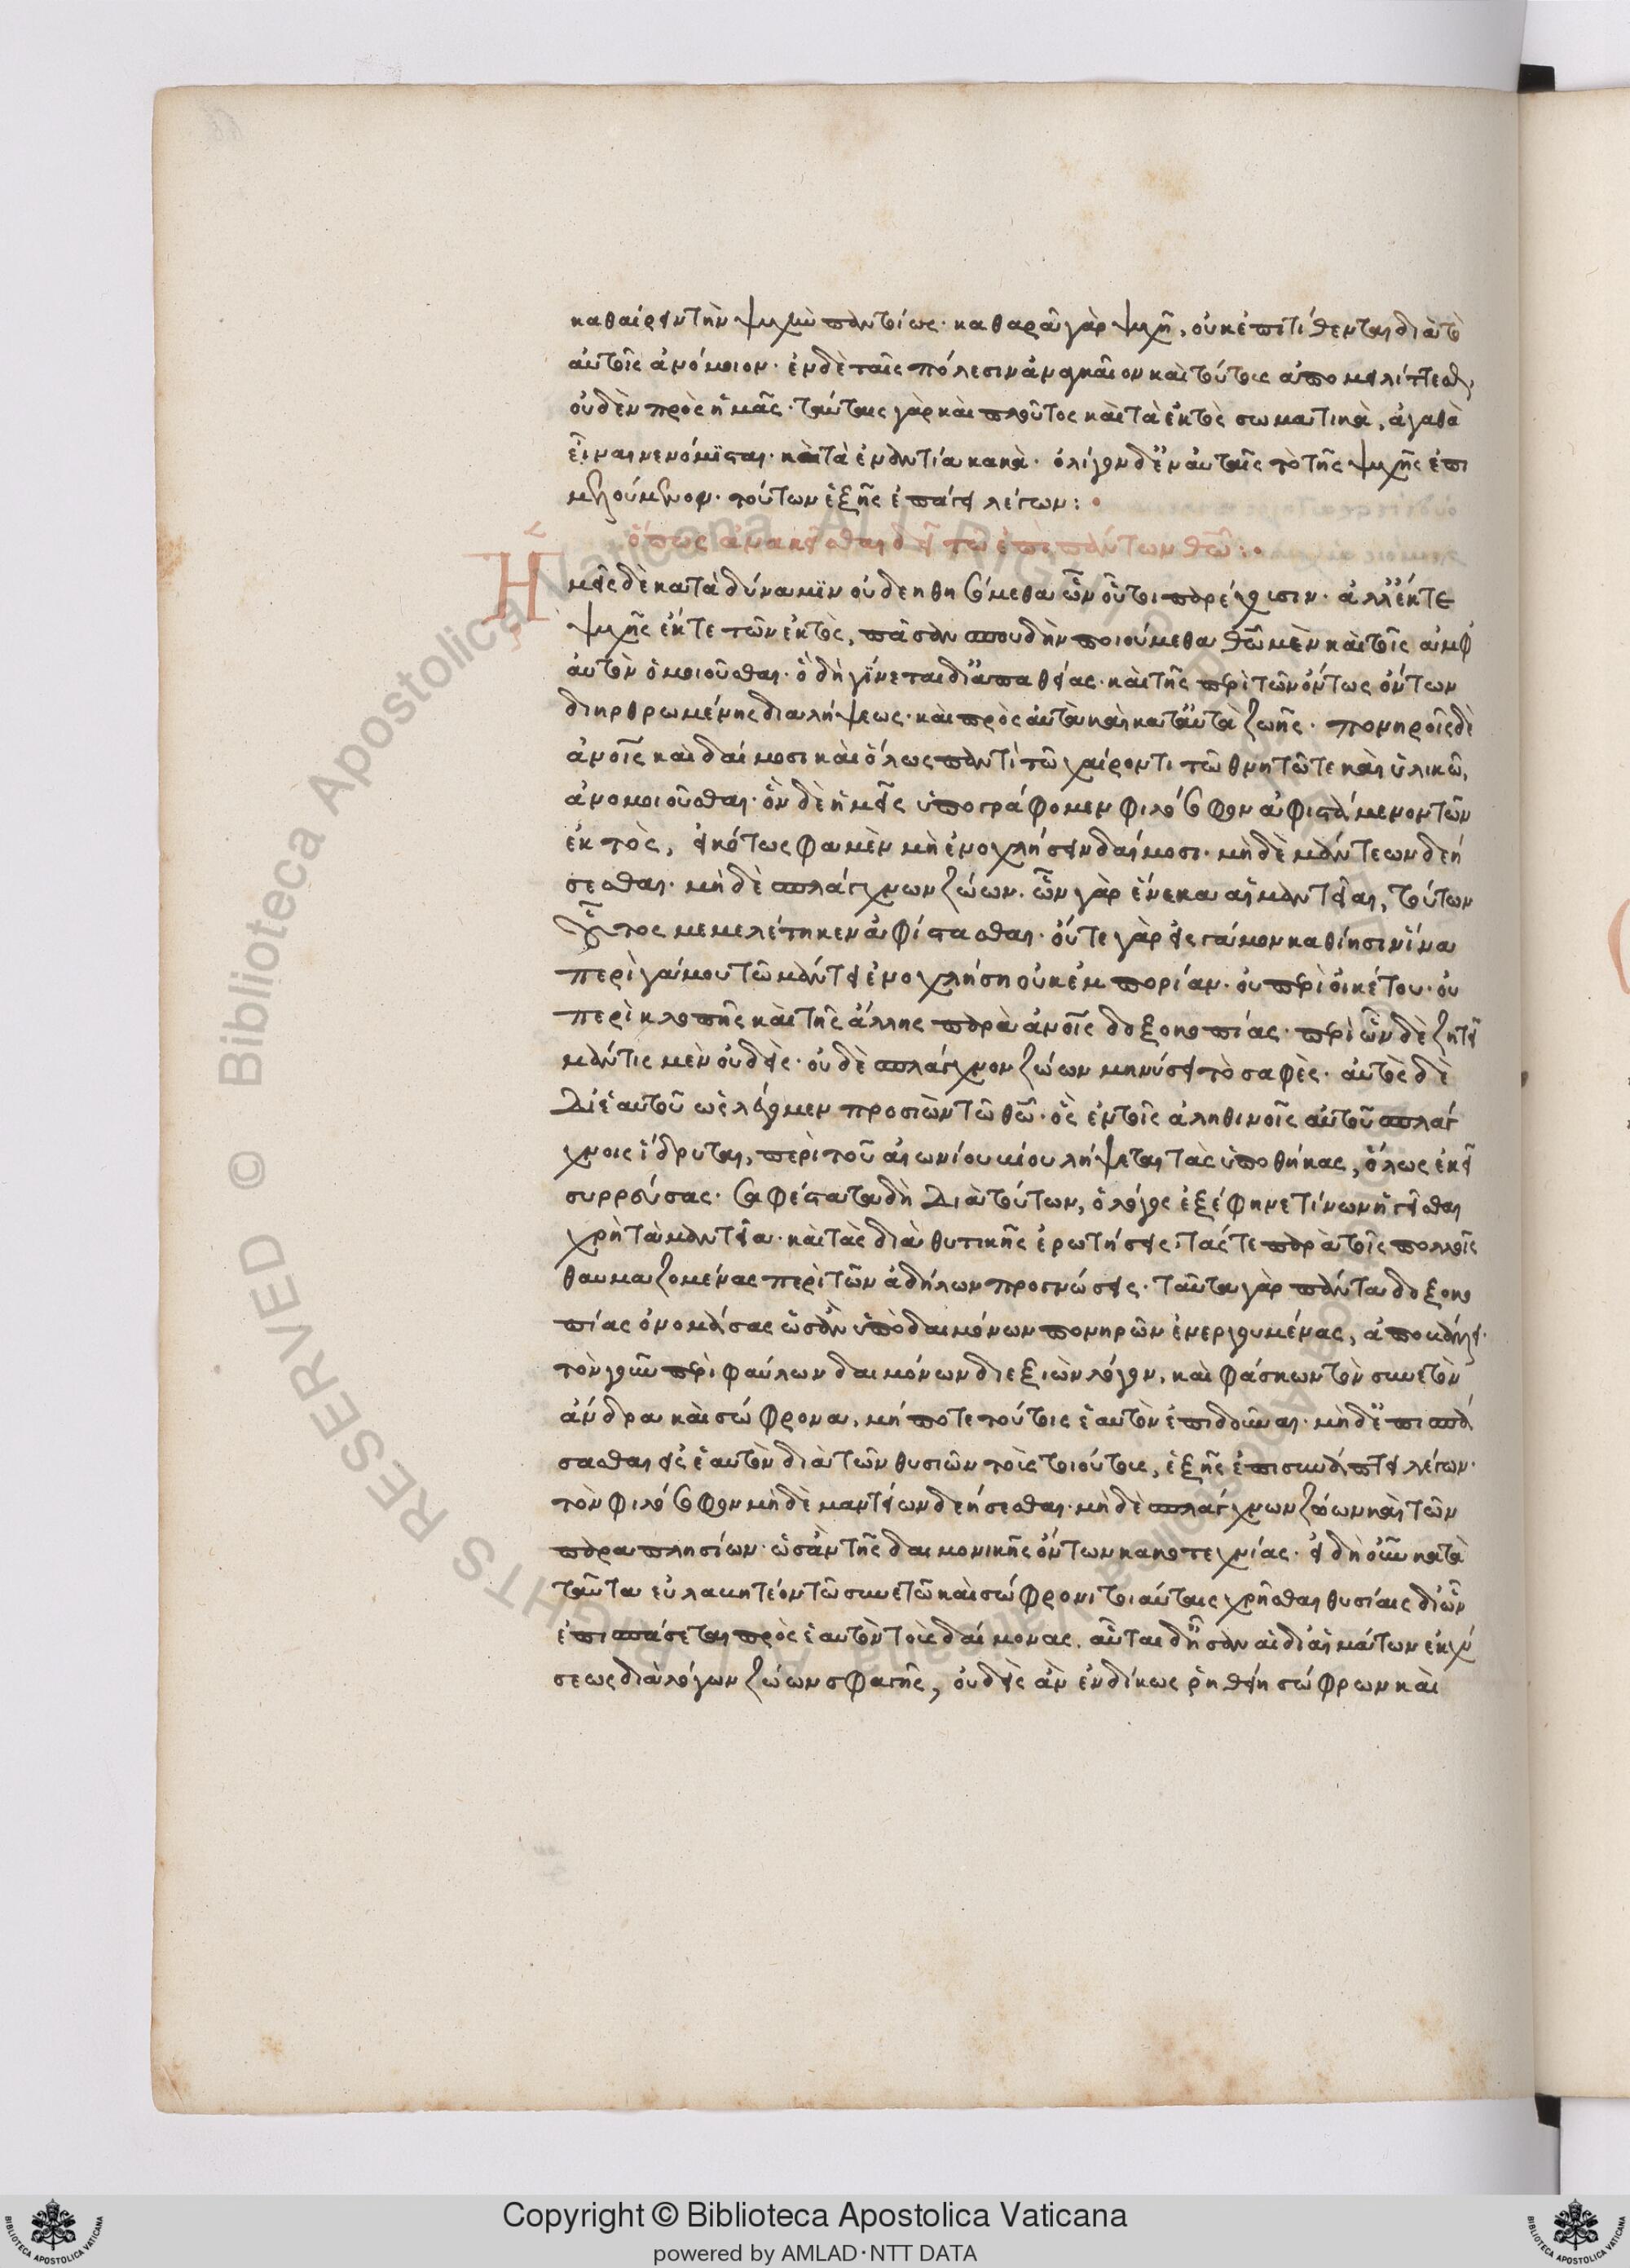 καθαίρειν τὴν ψυχὴν παντοίως· καθαρᾶ γὰρ ψυχῆ, οὐκ ἐπιτίθενται διὰ τὸ
αὐτοῖς ἀνόμοιον· ἐν δὲ ταῖς πόλεσιν ἀναγκαῖον καὶ τούτους ἀπομειλίττεσθαι,
οὐδὲν πρὸς ἡμᾶς· ταύταις γὰρ καὶ πλοῦτος καὶ τὰ ἐκτὸς σωματικὰ, ἀγαθὰ
εἶναι νενόμϊσται· καὶ τὰ ἐναντία κακὰ· ὀλίγον δ' ἐν αὐταῖς τὸ τῆς ψυχῆς ἐπι
μελούμενον. τούτων ἑξῆς ἐπάγει λέγων:
ὅπως ἀνακεῖσθαι δεῖ τῶ ἐπὶ πάντων θεῶ:
Ἡμεῖς δὲ κατὰ δύναμϊν οὐ δεηθησόμεθα ὧν οὗτοι παρέχουσιν· ἀλλ' ἔκ τε
ψυχῆς ἔκ τε τῶν ἐκτὸς, πᾶσαν σπουδὴν ποιούμεθα θεῶ μὲν καὶ τοῖς ἀμφ'
αὐτὸν ὁμοιοῦσθαι· ὃ δὴ γίνεται δι' ἀπαθείας· καὶ τῆς περὶ τῶν ὄντως ὄντων
διηρθρωμένης διαλήψεως· καὶ πρὸς αὐτὰ καὶ κατ' αὐτὰ ζωῆς· πονηροῖς δὲ
ἀνοις καὶ δαίμοσι καὶ ὅλως παντὶ τῶ χαίροντι τῶ θνητῶ τε καὶ ὑλικῶ,
ἀνομοιοῦσθαι· ὃν δὲ ἡμεῖς ὑπογράφομεν φιλόσοφον ἀφιστάμενον τῶν
ἐκτὸς, εἰκότως φαμὲν μὴ ἐνοχλήσειν δαίμοσι· μὴ δὲ μάντεων δεή
σεσθαι· μὴ δὲ σπλάγχνων ζώων. ὧν γὰρ ἕνεκα αἱ μαντεῖαι, τούτων
οὗτος μεμελέτηκεν ἀφίστασθαι· οὔτε γὰρ εἰς γάμον καθίησιν ἵνα
περὶ γάμου τῶ μάντει ἐνοχλήση οὐκ ἐμπορίαν· οὐ περὶ οἰκέτου· οὐ
περὶ κλοπῆς καὶ τῆς ἄλλης παρὰ ἀνοις δοξοκοπίας· περὶ ὧν δὲ ζητεῖ
μάντις μὲν οὐδεὶς· οὐδὲ σπλάγχνον ζώων μηνύσει τὸ σαφὲς· αὐτὸς δὲ
Δι' ἑαυτοῦ ὡς λέγομεν προσιὼν τῶ θεῶ· ὃς ἐν τοῖς ἀληθινοῖς αὐτοῦ σπλάγ
χνοις ἵδρυται, περὶ τοῦ αἰωνίου βίου λήψεται τὰς ὑποθήκας, ὅλως ἐκεῖ
συρρεύσας· Σαφέστατα δὴ Διὰ τούτων, ὁ λόγος ἐξέφηνε τίνων ἡγεῖσθαι
χρὴ τὰ μαντεῖα· καὶ τὰς διὰ θυτικῆς ἐρωτήσεις· τάς τε παρὰ τοῖς πολλοῖς
θαυμαζομένας περὶ τῶν ἀδήλων προγνώσεις· ταῦτα γὰρ πάντα δοξοκο
πίας ὀνομάσας ὡσὰν ὑπὸ δαιμόνων πονηρῶν ἐνεργουμένας, ἀποβάλλει·
τὸν γοῦν περὶ φαύλων δαιμόνων διεξιὼν λόγον, καὶ φάσκων τὸν συνετὸν
ἄνδρα καὶ σώφρονα, μή ποτε τούτοις ἑαυτὸν ἐπιδοῦναι· μὴ δ' ἐπισπά
σασθαι εἰς ἑαυτὸν διὰ τῶν θυσιῶν τοὺς τοιούτους, ἑξῆς ἐπισυνάπτει λέγων·
τὸν φιλόσοφον μὴ δὲ μαντείων δεήσεσθαι· μὴ δὲ σπλάγχνων ζώων καὶ τῶν
παραπλησίων· ὡσὰν τῆς δαιμονικῆς ὄντων κακοτεχνίας· εἰ δὴ οὖν κατὰ
ταῦτα εὐλαβητέον τῶ συνετῶ καὶ σώφρονι τοιαύταις χρῆσθαι θυσίαις δι' ὧν
ἐπισπάσεται πρὸς ἑαυτὸν τοὺς δαίμονας. αὗται δ' ἦσαν αἱ δι' αἱμάτων ἐκχύ
σεως δι' ἀλόγων ζώων σφαγῆς, οὐδεὶς ἂν ἐνδίκως ῥηθείη σώφρων καὶ
Copyright © Biblioteca Apostolica Vaticana
powered by AMLAD·NTT DATA